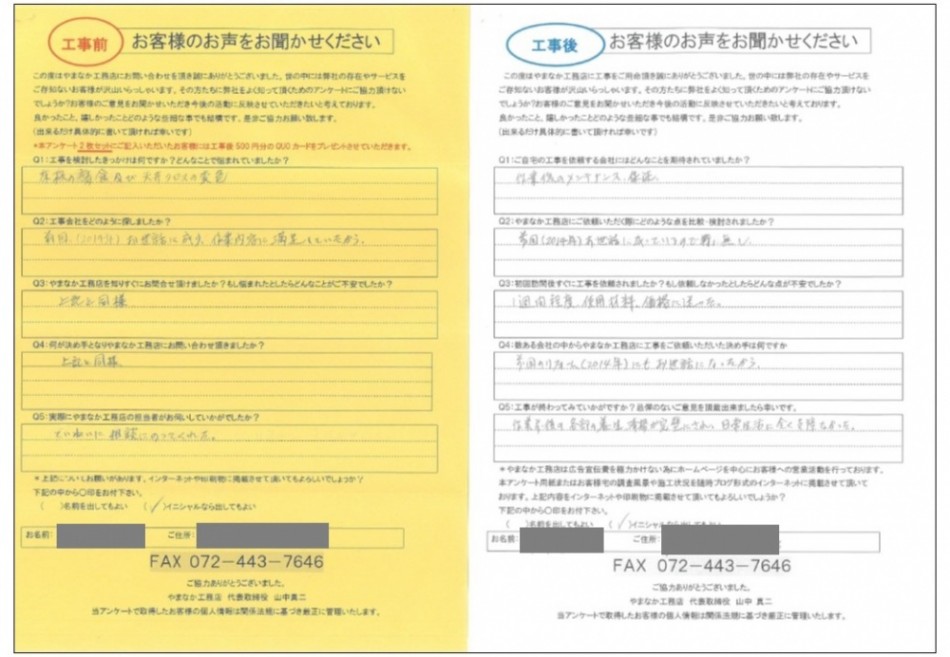 工事前
お客様のお声をお聞かせください
この度はやまなか工務店にお問い合わせを頂き誠にありがとうございました。世の中には弊社の存在やサービスを
ご存知ないお客様が沢山いらっしゃいます。その方たちに弊社をよく知って頂くためのアンケートにご協力頂けない
でしょうか?お客様のご意見をお聞かせいただき今後の活動に反映させていただきたいと考えております。
良かったこと、嬉しかったことどのような些細な事でも結構です。是非ご協力お願い致します。
(出来るだけ具体的に書いて頂ければ幸いです)
*本アンケート2枚セットにご記入いただいたお客様には工事後500円分のQUOカードをプレゼントさせていただきます。
Q1:工事を検討したきっかけは何ですか?どんなことで悩まれていましたか?
及び 天井クロスの変色
Q2:工事会社をどのように探しましたか?
前回、(2014年) お世話に成り、作業内容に満足していたから。
Q3:やまなか工務店を知りすぐにお問合せ頂けましたか?もし悩まれたとしたらどんなことがご不安でしたか?
上記と同様
Q4:何が決め手となりやまなか工務店にお問い合わせ頂きましたか?
上記と同様、
Q5:実際にやまなか工務店の担当者がお伺いしていかがでしたか?
ていねいに相談にのってくれた。
*上記についてお願いがあります。インターネットや印刷物に掲載させて頂いてもよろしいでしょうか?
下記の中から〇印をお付下さい。
( )名前を出してもよい ( ✓ )イニシャルなら出してもよい
お名前: ご住所:
FAX 072-443-7646
ご協力ありがとうございました。
やまなか工務店 代表取締役 山中真二
当アンケートで取得したお客様の個人情報は関係法規に基づき厳正に管理いたします。
工事後
お客様のお声をお聞かせください
この度はやまなか工務店に工事をご用命頂き誠にありがとうございました。世の中には弊社の存在やサービスを
ご存知ないお客様が沢山いらっしゃいます。その方たちに弊社をよく知って頂くためのアンケートにご協力頂けない
でしょうか?お客様のご意見をお聞かせいただき今後の活動に反映させていただきたいと考えております。
良かったこと、嬉しかったことどのような些細な事でも結構です。是非ご協力お願い致します。
(出来るだけ具体的に書いて頂ければ幸いです)
Q1:ご自宅の工事を依頼する会社にはどんなことを期待されていましたか?
作業後のメンテナンス、
Q2:やまなか工務店にご依頼いただく際にどのような点を比較・検討されましたか?
(2014年) お世話に成っているので 無し
Q3:初回訪問後すぐに工事を依頼されましたか?もし依頼しなかったとしたらどんな点が不安でしたか?
1週間程度、使用材料、価格に迷った。
Q4:数ある会社の中からやまなか工務店に工事をご依頼いただいた決め手は何ですか
(2014年)にもお世話になったから
Q5:工事が終わってみていかがですか?忌憚のないご意見を頂戴出来ましたら幸いです。
養生、清掃が完璧にされ、日常生活に全く
*やまなか工務店は広告宣伝費を極力かけない為にホームページを中心にお客様への営業活動を行っております。
本アンケート用紙またはお客様宅の調査風景や施工状況を随時ブログ形式のインターネットに掲載させて頂いて
おります。上記内容をインターネットや印刷物に掲載させて頂いてもよろしいでしょうか?
下記の中から〇印をお付下さい。
( )名前を出してもよい ( ✓ )イニシャルなら出してもよい
お名前: ご住所:
FAX 072-443-7646
ご協力ありがとうございました。
やまなか工務店 代表取締役 山中 真二
当アンケートで取得したお客様の個人情報は関係法規に基づき厳正に管理いたします。